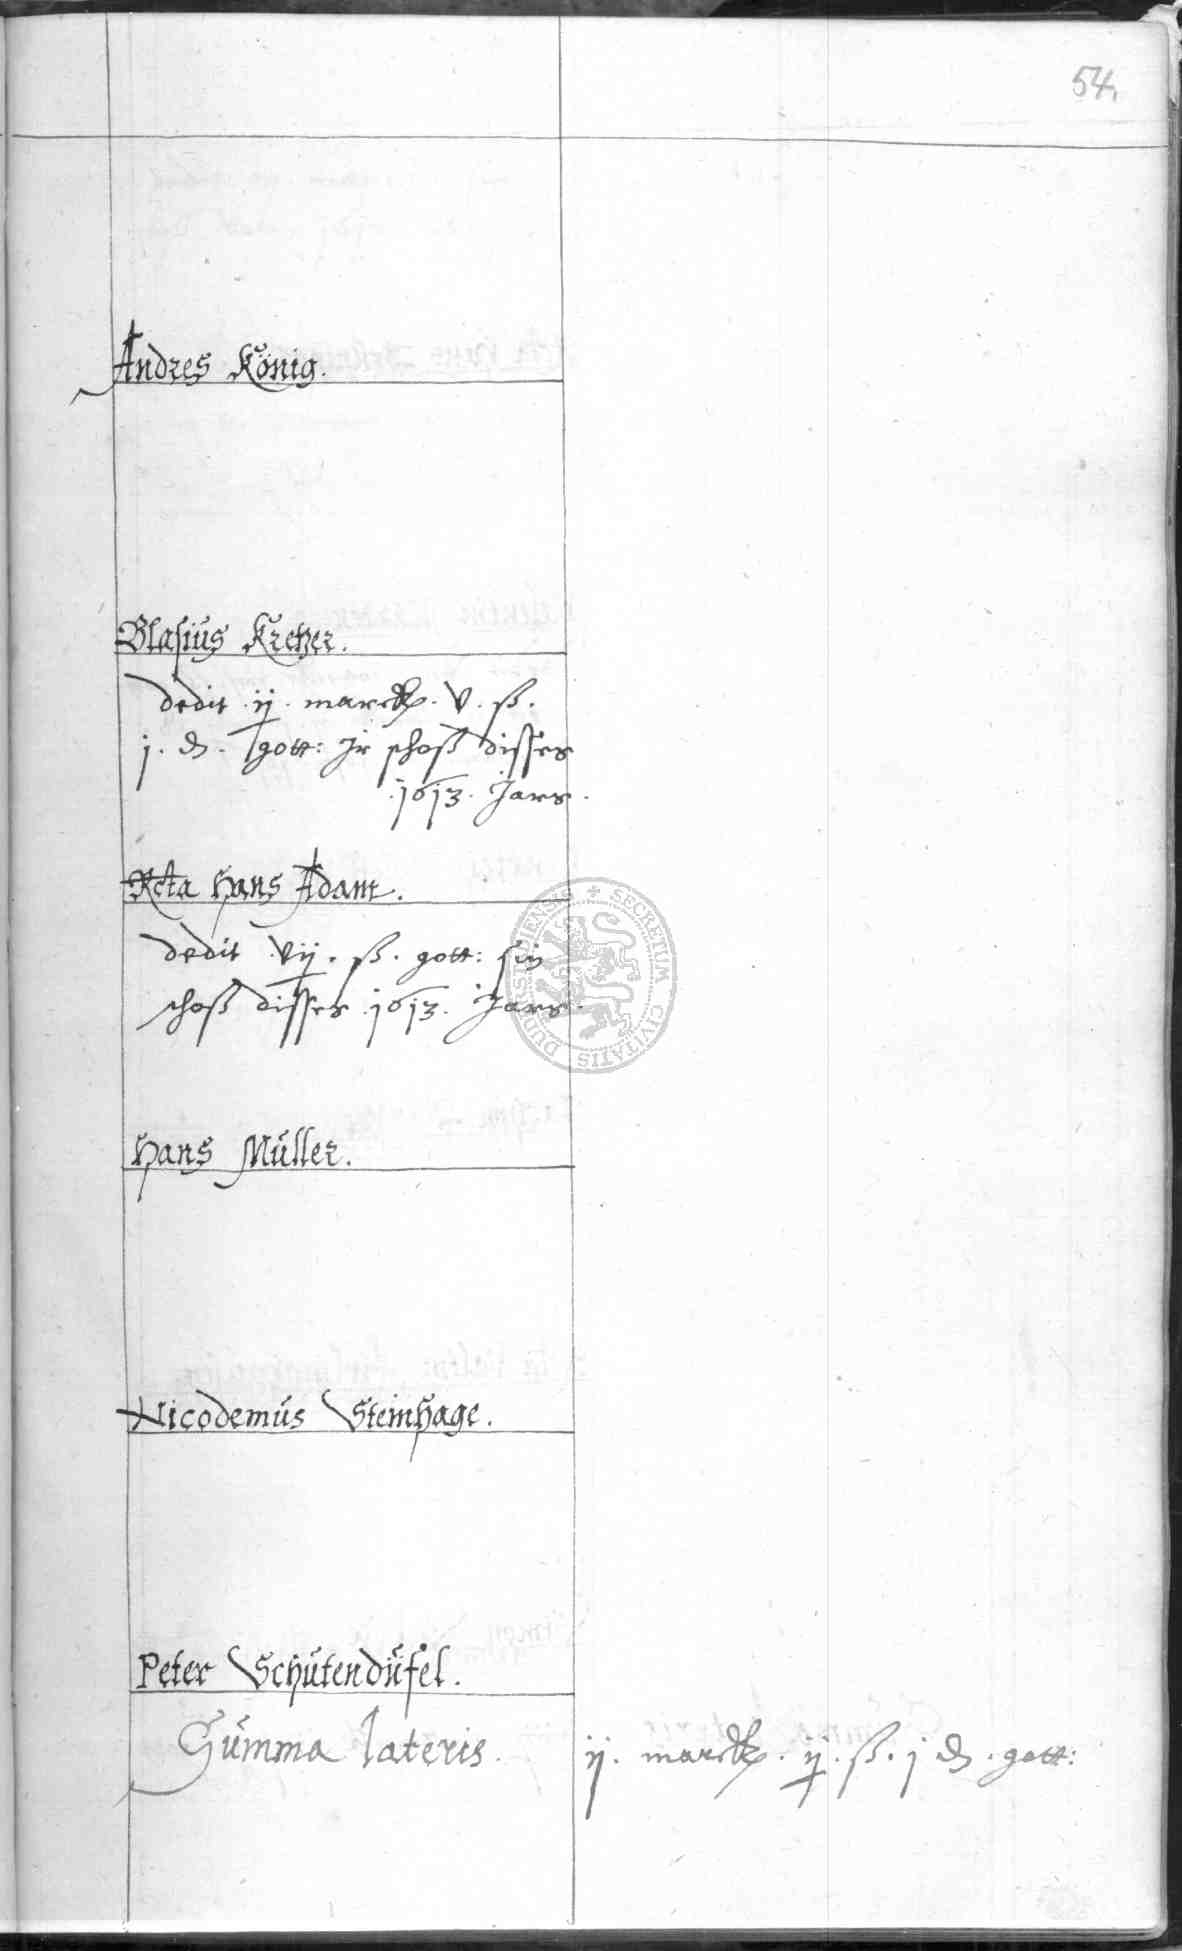 54,
Andres König.
Blasius Kretzer.
dedit .ij. marck. v. ß.
j. d. gott: Ir schoß disses
.1613. Jars.
Rcta Hans Adam.
dedit vij. ß. gott: sin
schoß disses .1613. Jars.
SECRETUM CIVITATIS DUDERSTADIENSIS
Hans Müller.
Nicodemus Steinhage.
Peter Schutendüfel.
Summa lateris. ij. marck. ij. ß. j d. gott: